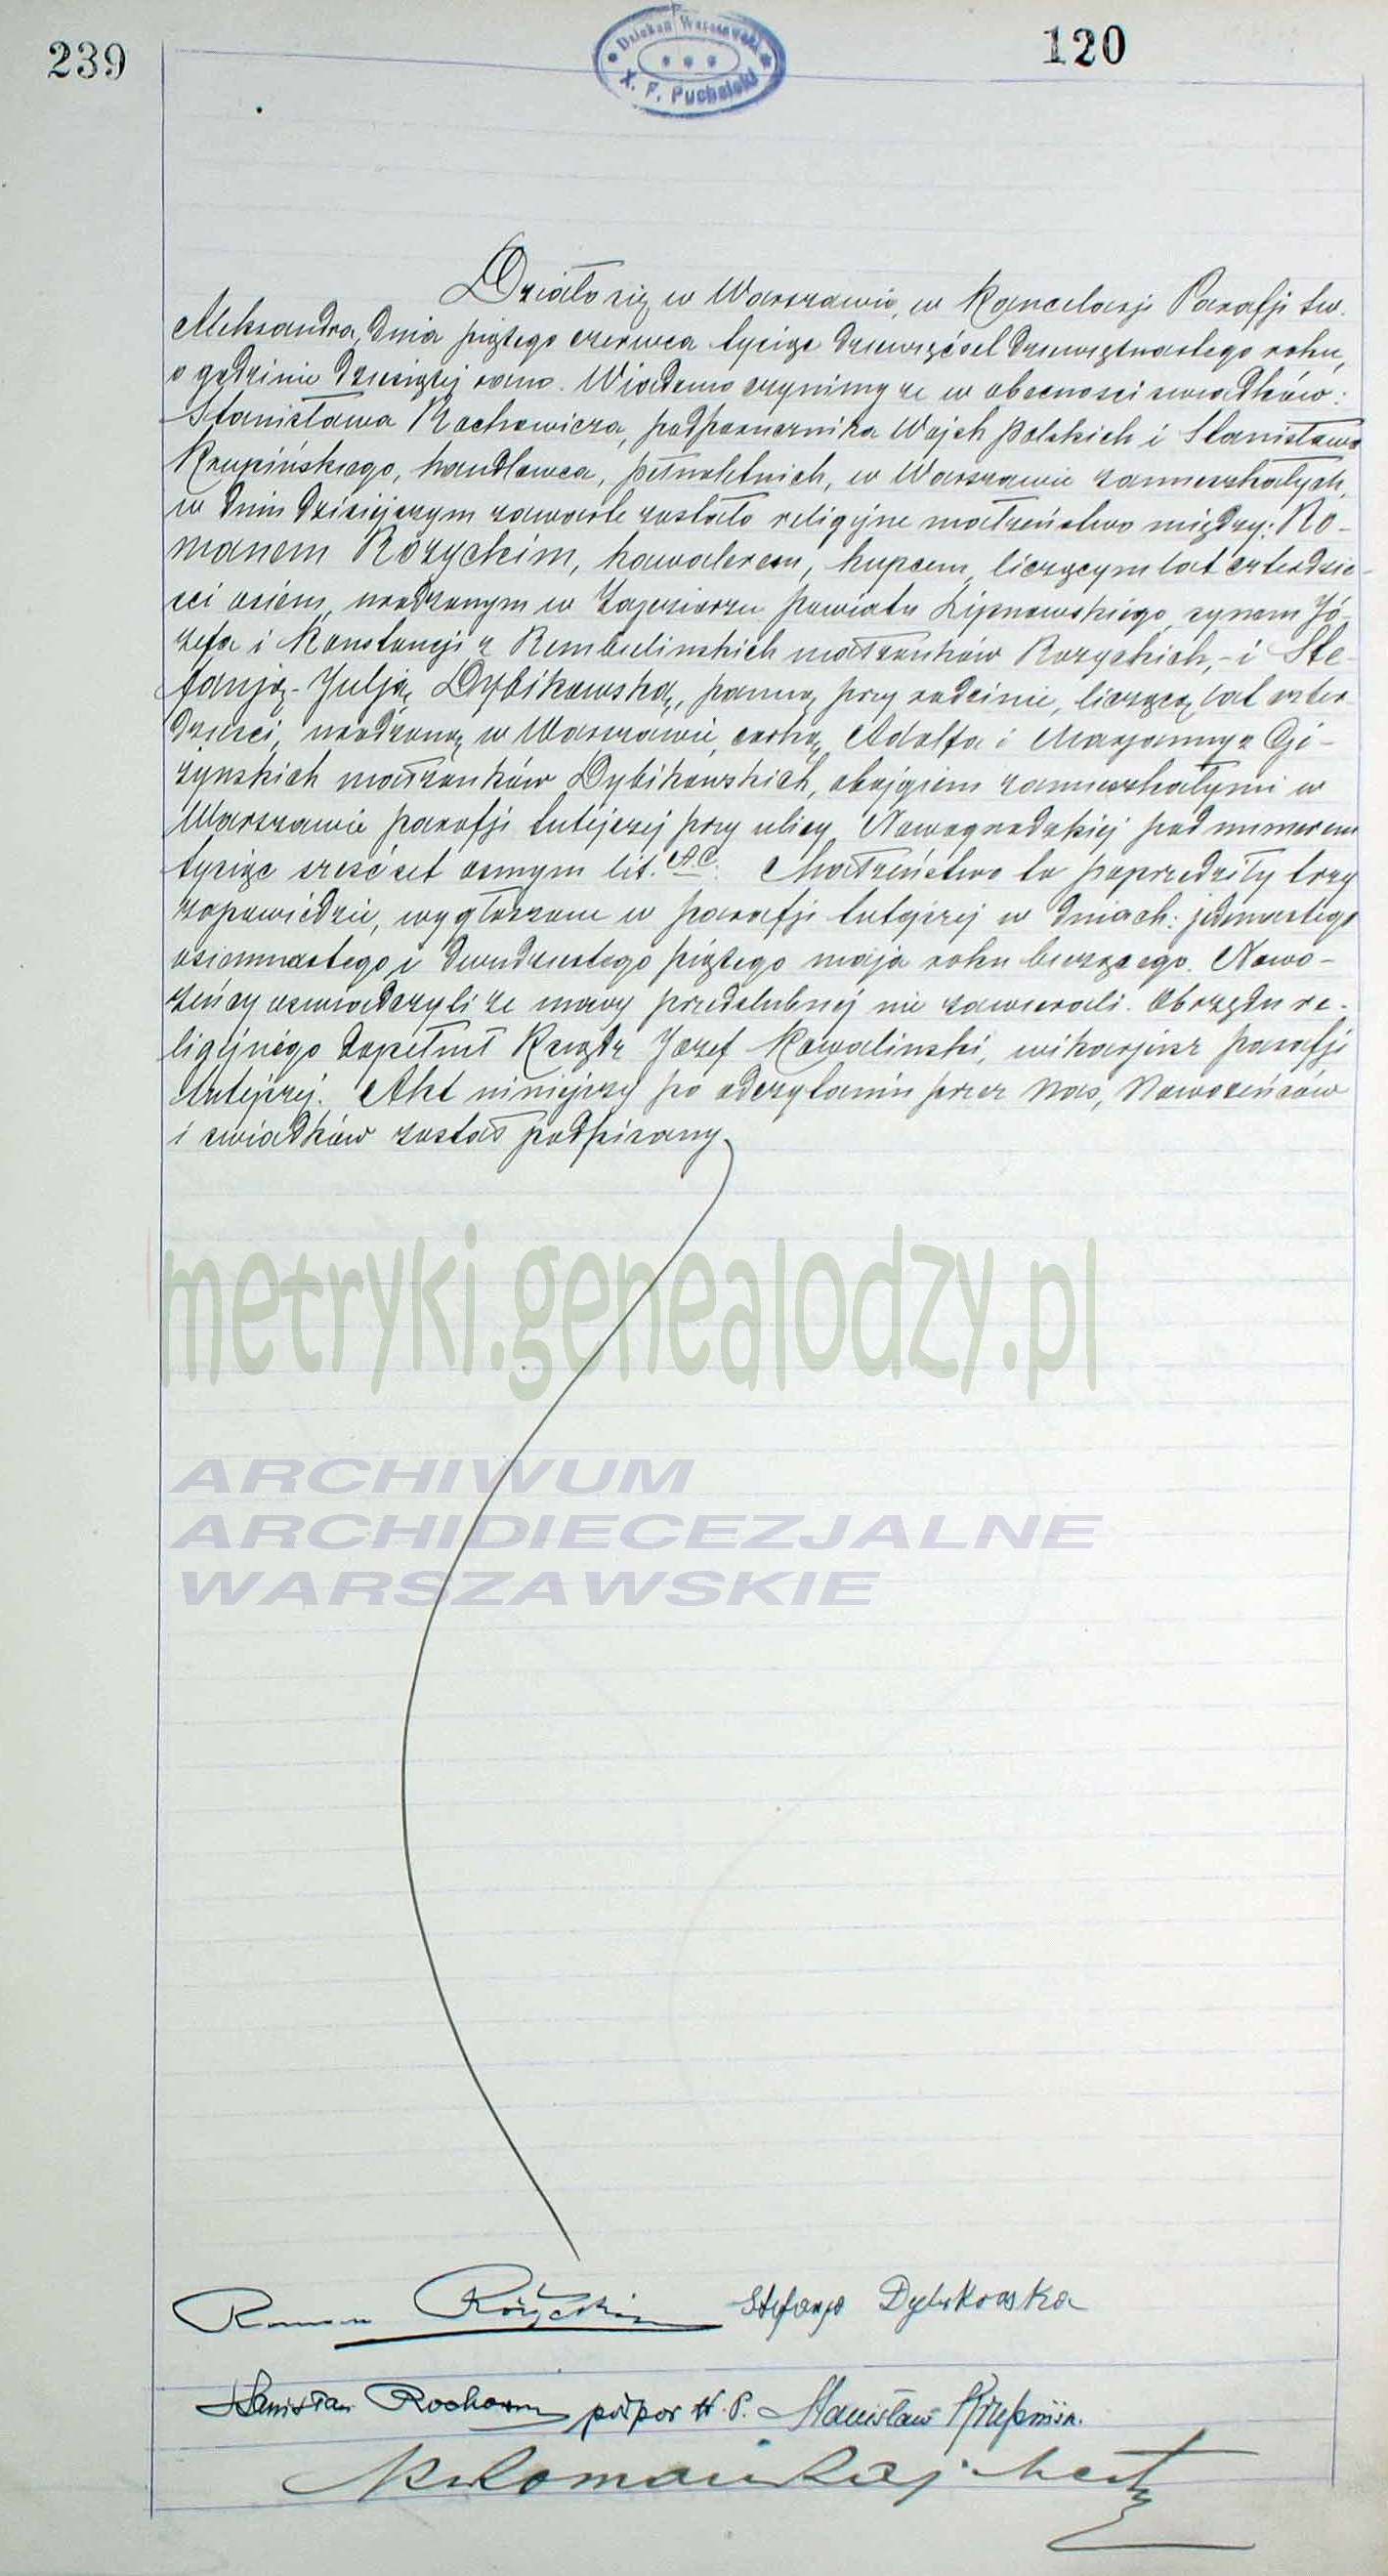 239
120
Dziekan Warszawski
X. F. Puchalski
Działo się w Warszawie, w Kancelarji Parafji św.
Aleksandra, dnia piątego czerwca tysiąc dziewięćset dziewiętnastego roku,
o godzinie dziesiątej rano. Wiadomo czynimy ze w obecnosci swiadków:
Stanisława Rochowicza, podporucznika Wojsk Polskich i Stanisława
Krupińskiego, handlowca, pełnoletnich, w Warszawie zamieszkałych,
w dniu dzisiejszym zawarte zostało religijne małzeństwo między: Ro-
manem Rózyckim, kawalerem, kupcem, liczącym lat czterdzie-
sci osiem, urodzonym w Zajeziorzu powiatu Lipnowskiego, synem Jó-
zefa i Konstancji z Rembielinskich małzonków Rozyckich, - i Ste-
fanją-Julją Dybikowską, panną przy rodzinie, liczącą lat czter-
dziesci, urodzoną w Warszawie, corką Adolfa i Marjanny z Gi-
zynskich małzonków Dybikowskich, obojgiem zamieszkałymi w
Warszawie parafji tutejszej przy ulicy Nowogrodzkiej pod numerem
tysiąc szescset osmym lit. A.C. Małzeństwo to poprzedziły trzy
zapowiedzie, wygłoszone w parafji tutejszej w dniach: jedenastego
osiemnastego i dwudziestego piątego maja roku biezącego. Nowo-
zeńcy oswiadczyli ze umowy przedslubnej nie zawierali. Obrzędu re-
ligijnego dopełnił Ksiądz Jozef Kowalinski, wikarjusz parafji
tutejszej. Akt niniejszy po odczytaniu przez Nas, Nowozeńców
i swiadków został podpisany.
metryki.genealodzy.pl
ARCHIWUM
ARCHIDIECEZJALNE
WARSZAWSKIE
Roman Różycki Stefanja Dybikowska
Stanisław podpor W. P. Stanisław